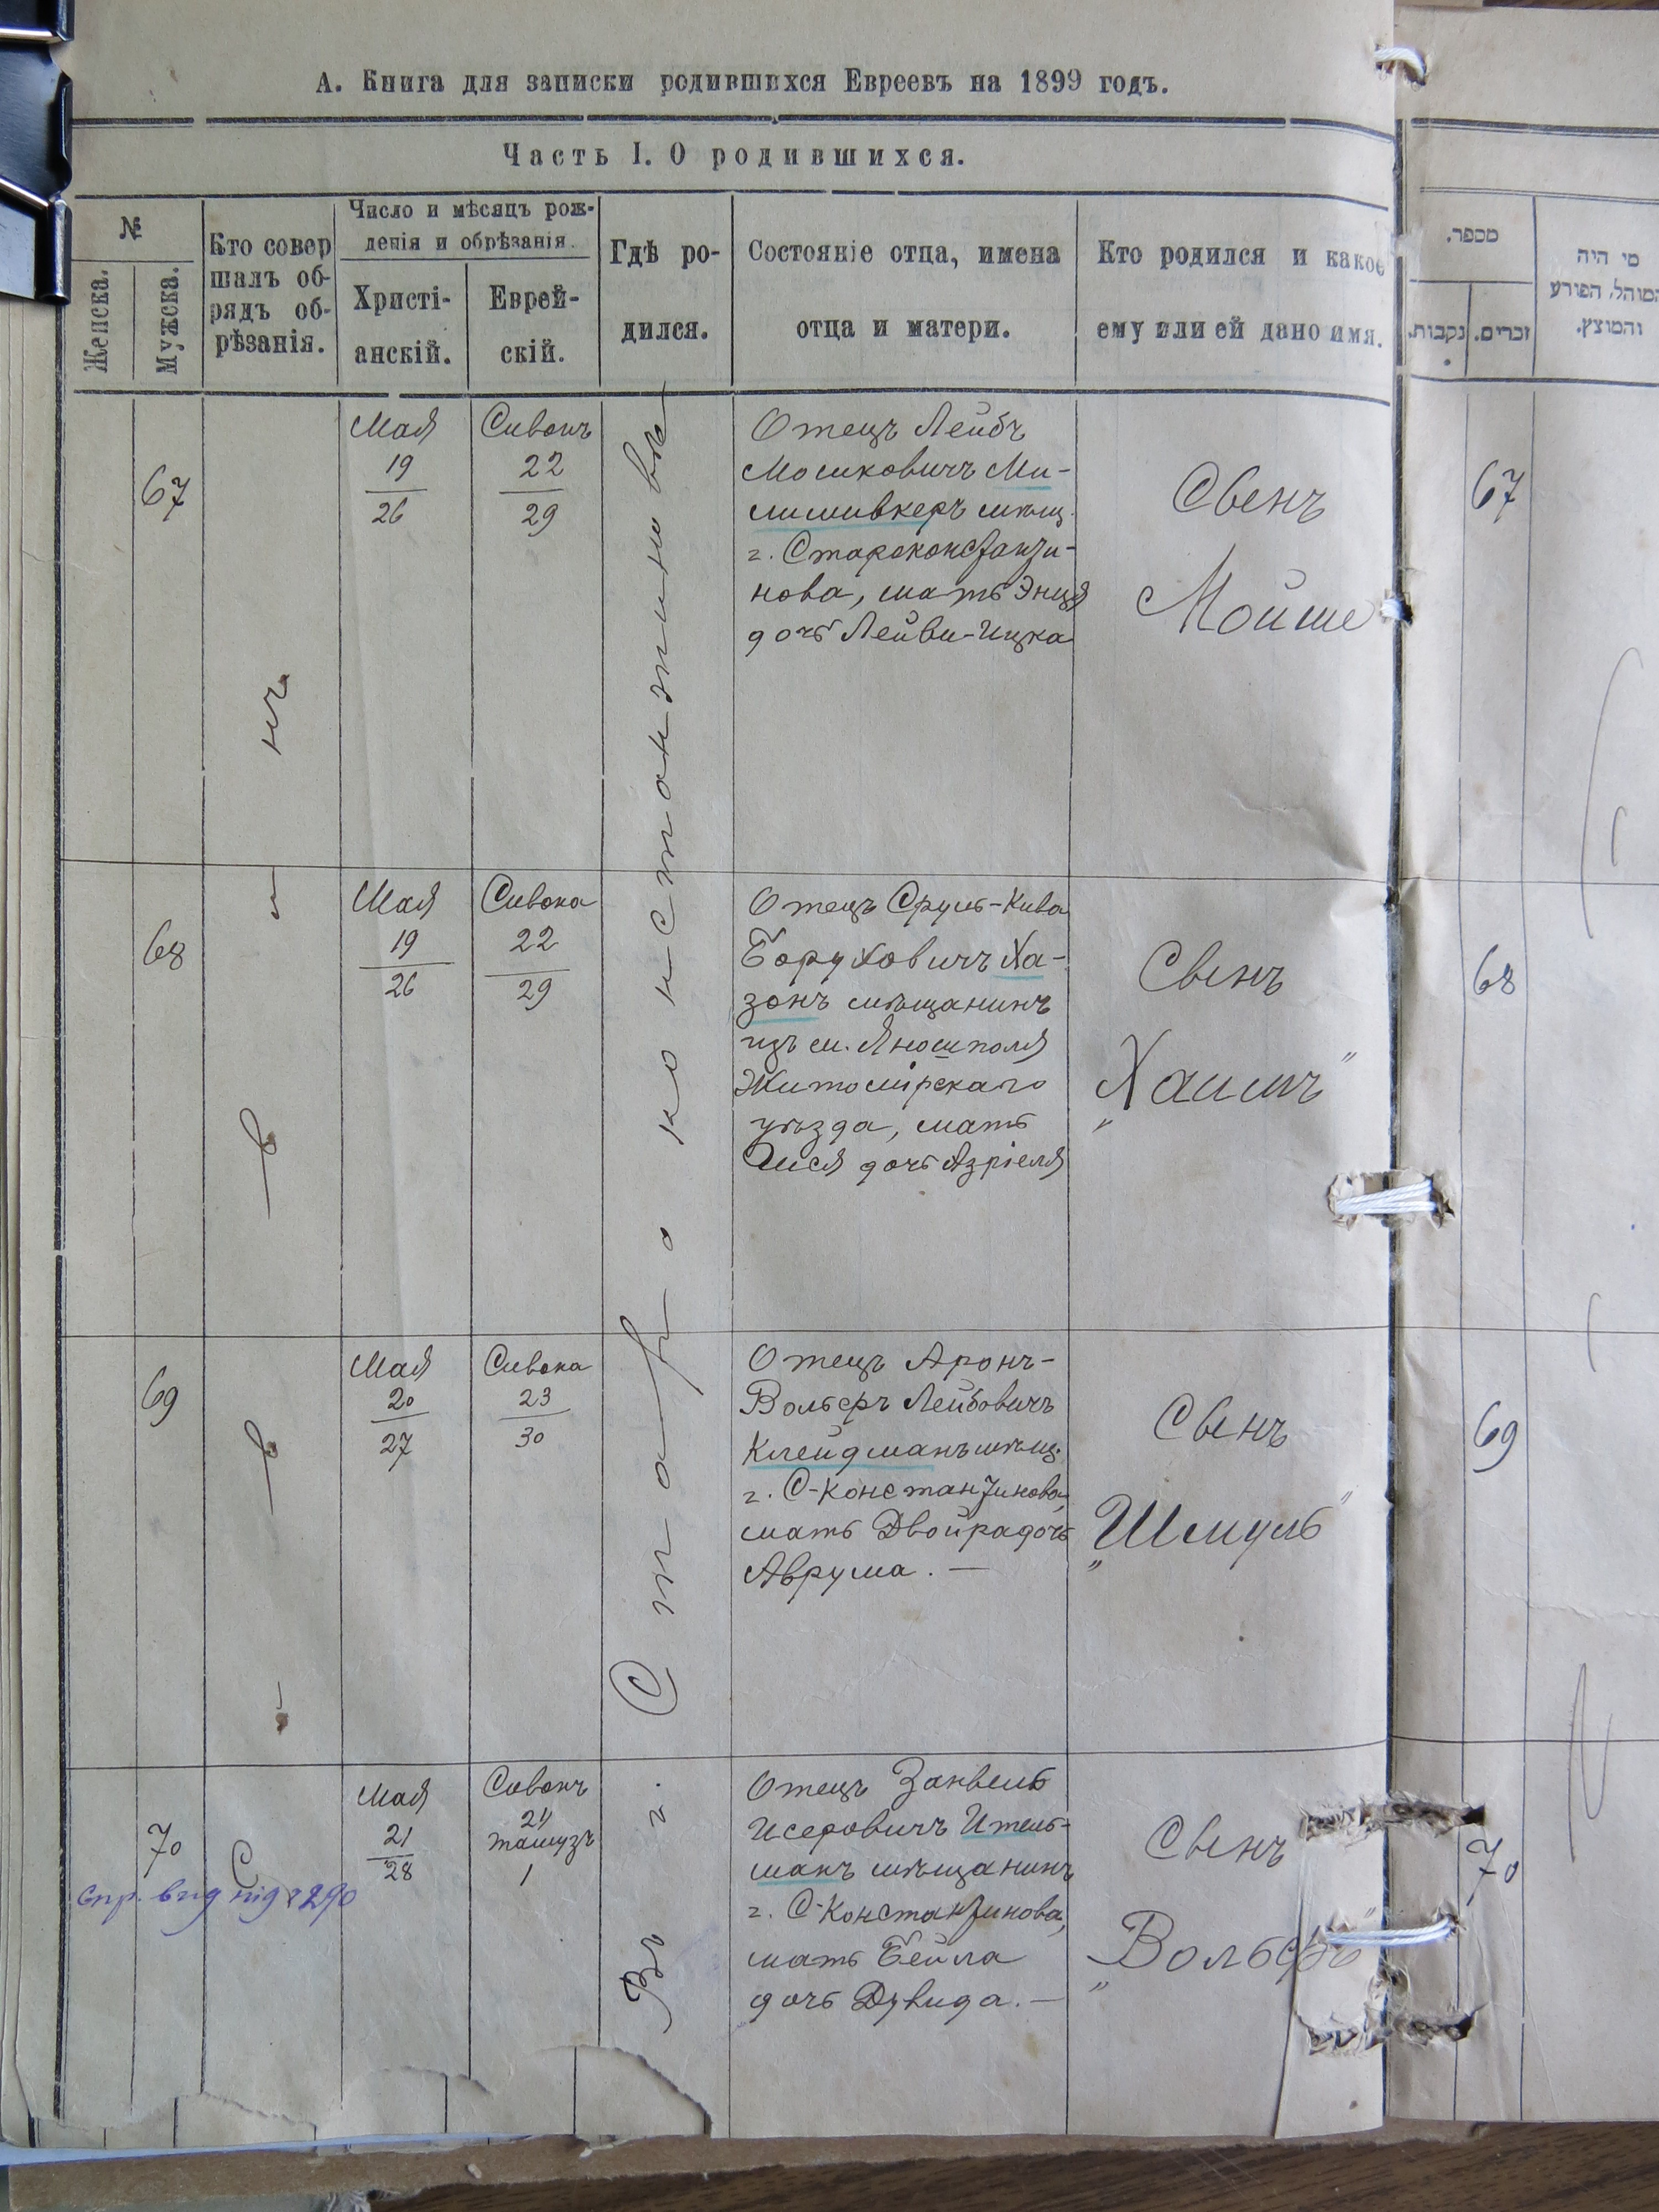 А. Книга для записки родившихся Евреевъ на 1899 годъ.
Часть I. О родившихся.
№
Женска.
Мужска.
Кто совер
шалъ об-
рядъ об-
рѣзанія.
Число и мѣсяцъ рож-
денія и обрѣзанія.
Христі-
анскій.
Еврей-
скій.
Гдѣ ро-
дился.
Состояніе отца, имена
отца и матери.
Кто родился и какое
ему или ей дано имя.
מספר.
נקבות.
זכרים.
מי היה
המוהל, הפורע
והמוצץ.
Въ г. Староконстантиновѣ
67
Мая
19
26
Сивонъ
22
29
Отецъ Лейбъ
Мошковичъ Ми-
лишкеръ мѣщ.
г. Староконстанти-
нова, мать Энця
дочь Лейви-Ицка
Сынъ
Мойше
67
68
Мая
19
26
Сивона
22
29
Отецъ Сруль-Кива
Боруховичъ Ха-
зонъ мѣщанинъ
изъ м. Яношполя
Житомірскаго
уѣзда, мать
дочь Азріеля
Сынъ
„Хаимъ"
68
69
Мая
20
27
Сивона
23
30
Отецъ Аронъ-
Вольфъ Лейбовичъ
Клейдманъ мѣщ.
г. С-Константинова,
мать Двойра дочь
Аврума. —
Сынъ
„Шмуль"
69
70
Мая
21
28
Сивонъ
24
тамузъ
1
Отецъ Занвель
Исеровичъ Итель-
манъ мѣщанинъ
г. С-Константинова,
мать Бейла
дочь Дувида. —
Сынъ
„Вольфъ"
70
290